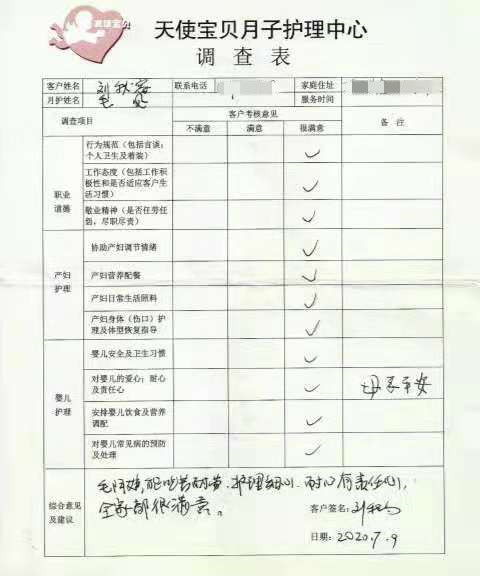 天使宝贝
天使宝贝月子护理中心
调查表
客户姓名 联系电话 家庭住址
月护姓名 毛 服务时间
调查项目 客户考核意见 备注
不满意 满意 很满意
职业道德
行为规范（包括言谈；
个人卫生及着装） ✓
工作态度（包括工作积
极性和是否适应客户生
活习惯） ✓
敬业精神（是否任劳任
怨，尽职尽责） ✓
产妇护理
协助产妇调节情绪 ✓
产妇营养配餐 ✓
产妇日常生活照料 ✓
产妇身体（伤口）护
理及体型恢复指导 ✓
婴儿护理
婴儿安全及卫生习惯 ✓
对婴儿的爱心；耐心
及责任心 ✓ 母子平安
安排婴儿饮食及营养
调配 ✓
对婴儿常见病的预防
及处理 ✓
综合意见
及建议
毛阿姨 吃苦耐劳，护理细心、耐心有责任心，
全家都很满意。
客户签名：
日期：2020.7.9